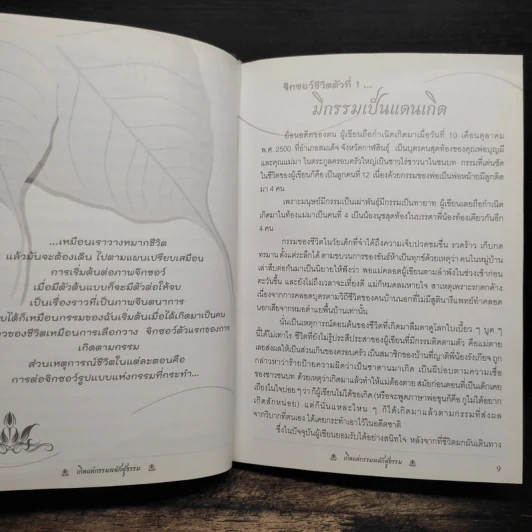 ...เหมือนเราวางหมากชีวิต
แล้วมันจะต้องเดิน ไปตามแผนเปรียบเสมือน
การเริ่มต้นต่อภาพจิกซอว์
เมื่อมีตัวต้นแบบก็จะมีตัวต่อให้จบ
เป็นเรื่องราวที่เป็นภาพจินตนาการ
ได้ก็เหมือนกรรมของฉันเริ่มต้นเมื่อได้เกิดมาเป็นคน
ของชีวิตเหมือนการเลือกวาง จิกซอว์ตัวแรกของการ
เกิดตามกรรม
ส่วนเหตุการณ์ชีวิตในแต่ละตอนคือ
การต่อจิกซอว์รูปแบบแห่งกรรมที่กระทำ...
เกิดแต่กรรมผลักสู่ธรรม
จิกซอว์ชีวิตตัวที่ 1 ...
มีกรรมเป็นแดนเกิด
ย้อนอดีตของตน ผู้เขียนถือกำเนิดเกิดมาเมื่อวันที่ 10 เดือนตุลาคม
พ.ศ. 2500 ที่อำเภอสมเด็จ จังหวัดกาฬสินธุ์ เป็นบุตรคนสุดท้องของคุณพ่อบุญมี
และคุณแม่มา ในตระกูลครอบครัวใหญ่เป็นชาวไร่ชาวนาในชนบท กรรมที่เด่นชัด
ในชีวิตของผู้เขียนก็คือ เป็นลูกคนที่ 12 เนื่องด้วยกรรมของพ่อเป็นพ่อหม้ายมีลูกติด
มา 4 คน
เพราะมนุษย์มีกรรมเป็นเผ่าพันธุ์มีกรรมเป็นทายาท ผู้เขียนเลยถือกำเนิด
เกิดมาในท้องแม่มาเป็นคนที่ 4 เป็นน้องนุชสุดท้องในบรรดาพี่น้องท้องเดียวกันอีก
4 คน
กรรมของชีวิตในวัยเด็กที่จำได้ถึงความเจ็บปวดขมขื่น รวดร้าว เก็บกด
ทรมาน ตั้งแต่ระลึกได้ ตามขบวนการของขันธ์ห้าเป็นทุกข์ด้วยเหตุว่า คนในหมู่บ้าน
เล่าสืบต่อกันมาเป็นนิยายให้ฟังว่า พอแม่คลอดผู้เขียนตามลำพังในช่วงเช้าก่อน
ตะวันขึ้น และยังไม่ถึงเวลาจะเที่ยงดี แม่ก็หมดลมหายใจ สาเหตุเพราะรกตกค้าง
เนื่องจากการคลอดบุตรตามวิถีชีวิตของคนบ้านนอกที่ไม่มีสูตินารีแพทย์ทำคลอด
นอกเสียจากหมอตำแยพื้นบ้านเท่านั้น
นั่นเป็นเหตุการณ์ตอนต้นของชีวิตที่เกิดมาลืมตาดูโลกใบเบี้ยว ๆ บูด ๆ
นี้ได้ไม่เท่าไร ชีวิตที่ยังไม่รู้ประสีประสาของผู้เขียนที่มีกรรมติดตามตัว คือแม่ตาย
เลยส่งผลให้เป็นส่วนเกินของครอบครัว เป็นสมาชิกของบ้านที่ญาติพี่น้องรังเกียจถูก
กล่าวหาว่าร้ายป้ายความผิดว่าเป็นซาตานมาเกิด เป็นผีปอบตามความเชื่อ
ของชาวชนบท ด้วยเหตุว่าเกิดมาแล้วทำให้แม่ต้องตาย สมัยก่อนตอนที่เป็นเด็กเคย
เถียงในใจบ่อยๆว่า ก็ผู้เขียนไม่ได้ขอเกิด (หรือจะพูดภาษาพ่อขุนก็คือ กูไม่ได้อยาก
เกิดสักหน่อย) แต่ก็นั่นแหละไหน ๆ ก็ได้เกิดมาแล้วตามกรรมที่ส่งผล
จากวิบากที่ตนเอง ได้เคยกระทำเอาไว้ในอดีตชาติ
ซึ่งในปัจจุบันผู้เขียนยอมรับได้อย่างสนิทใจ หลังจากที่ชีวิตผกผันเดินทาง
เกิดแต่กรรมผลักสู่ธรรม
9